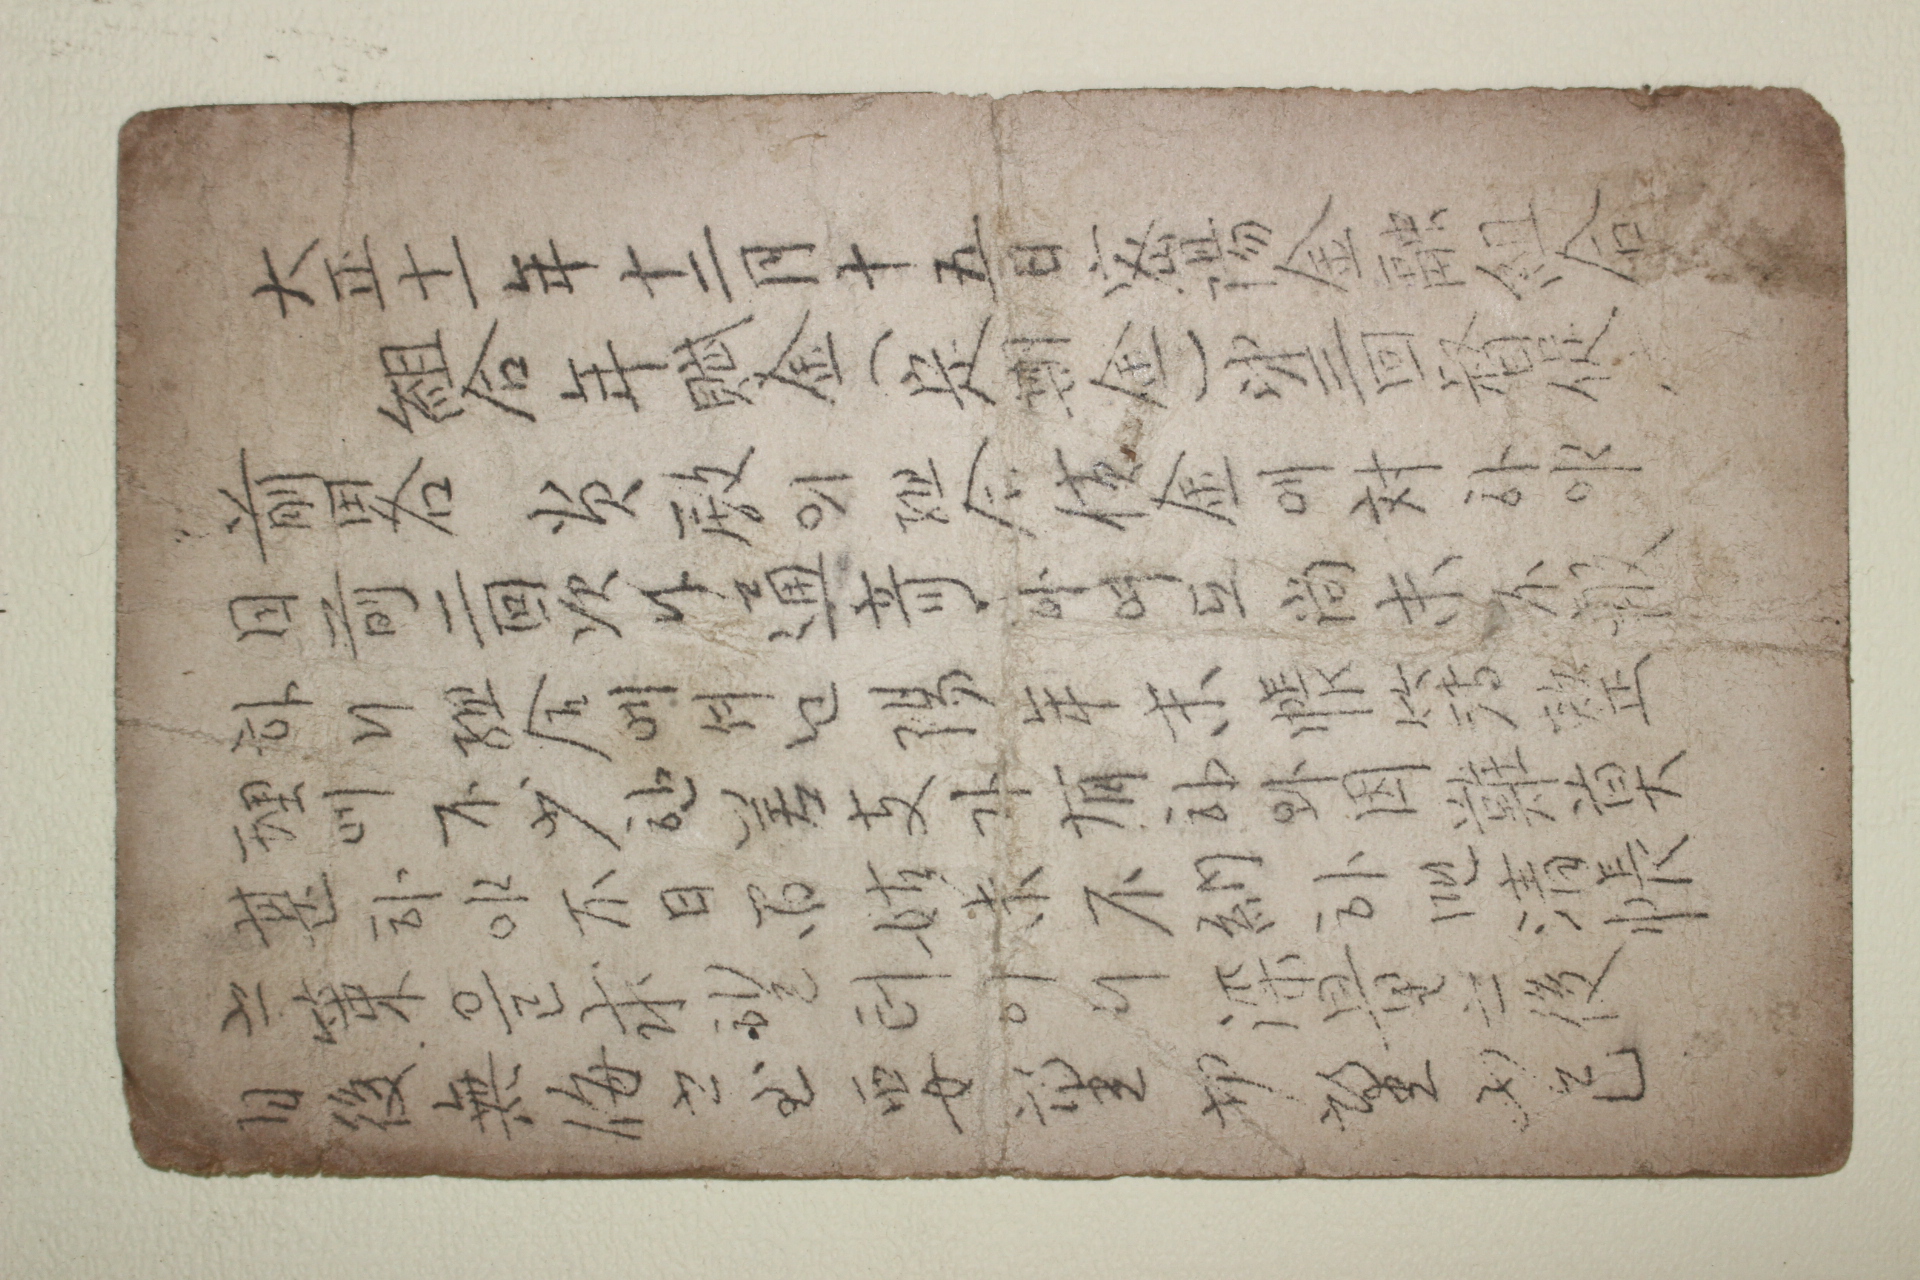 大正十一年十二月十五日密陽金融組合
組合年賦金(定期金)第三回督促
前畧 貴殿의組合債金에対하야
目前二回次나通寄하여도尚未不報
하니組合에셔난陽年末帳簿整
理에不少한差支가有하와困難莫
甚하야不日間姑未不納하면清帳
之策을求할터이니深量之後
日後無悔之至要望 切望